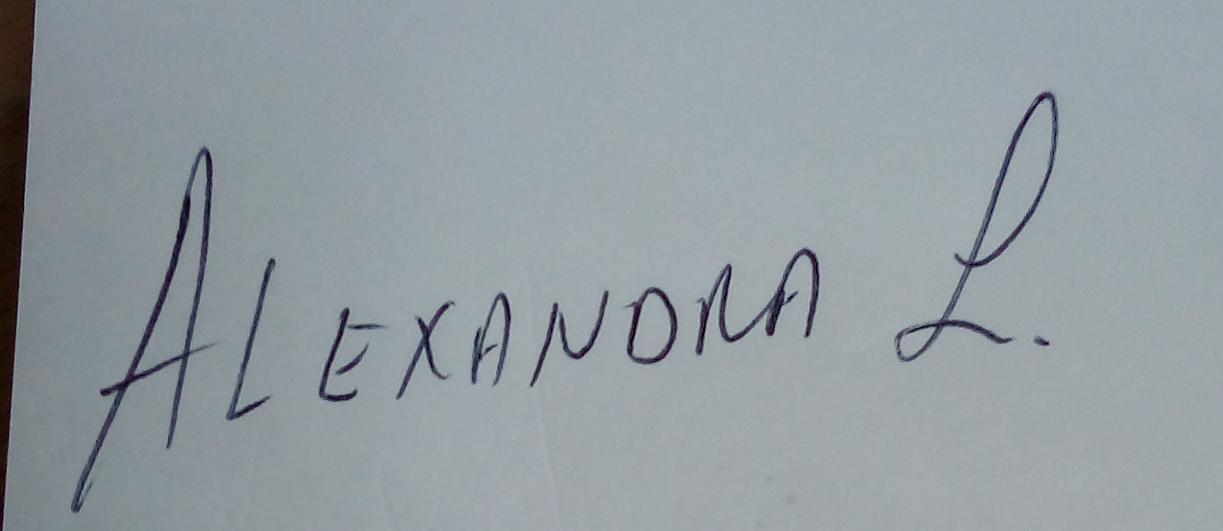 ALEXANDRA L.